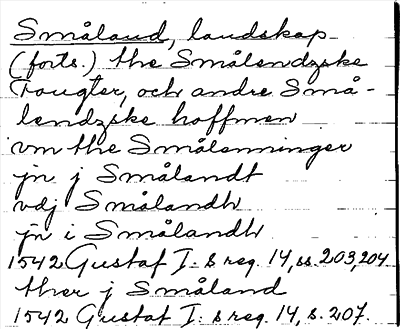 Småland, landskap
(forts.) the Smålendzske
Fougter, och andre Små-
lendzske hoffmen
vm the Smålenninger
jn j Smålandt
vdj Smålandh
jn i Smålandh
1542 Gustaf I:s reg. 14, ss. 203, 204
ther j Småland
1542 Gustaf I:s reg. 14, s. 207.